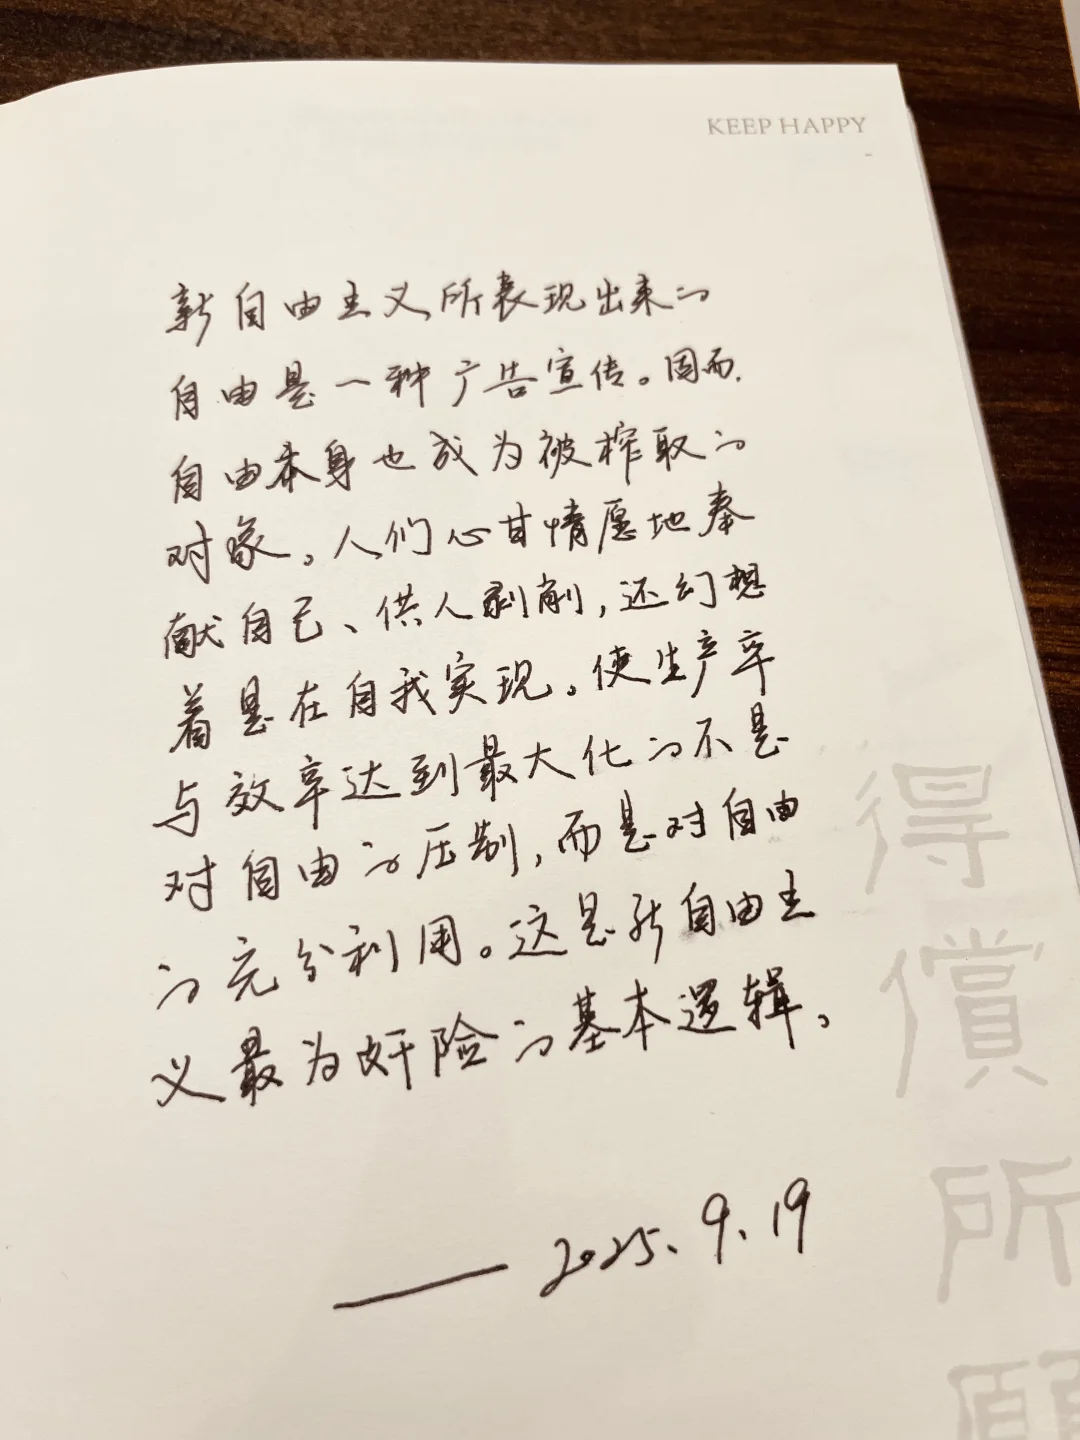 KEEP HAPPY
新自由主义所表现出来的
自由是一种广告宣传。因而,
自由本身也成为被榨取的
对象。人们心甘情愿地奉
献自己、供人剥削,还幻想
着是在自我实现。使生产率
与效率达到最大化的不是
对自由的压制,而是对自由
的充分利用。这是新自由主
义最为奸险的基本逻辑。
—— 2025.9.19
得
償
所
願